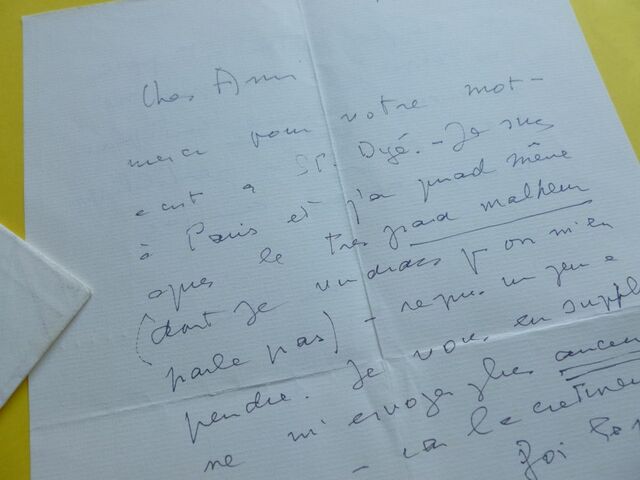 Cher Ami
merci pour votre mot -
écrit à St. Dyé. - Je suis
à Paris et j'ai quand même
après le très grand malheur
(dont je voudrais on m'en
parle pas) - repris un peu à
peindre. Je vous en suppl
ne m'envoyez plus aucun